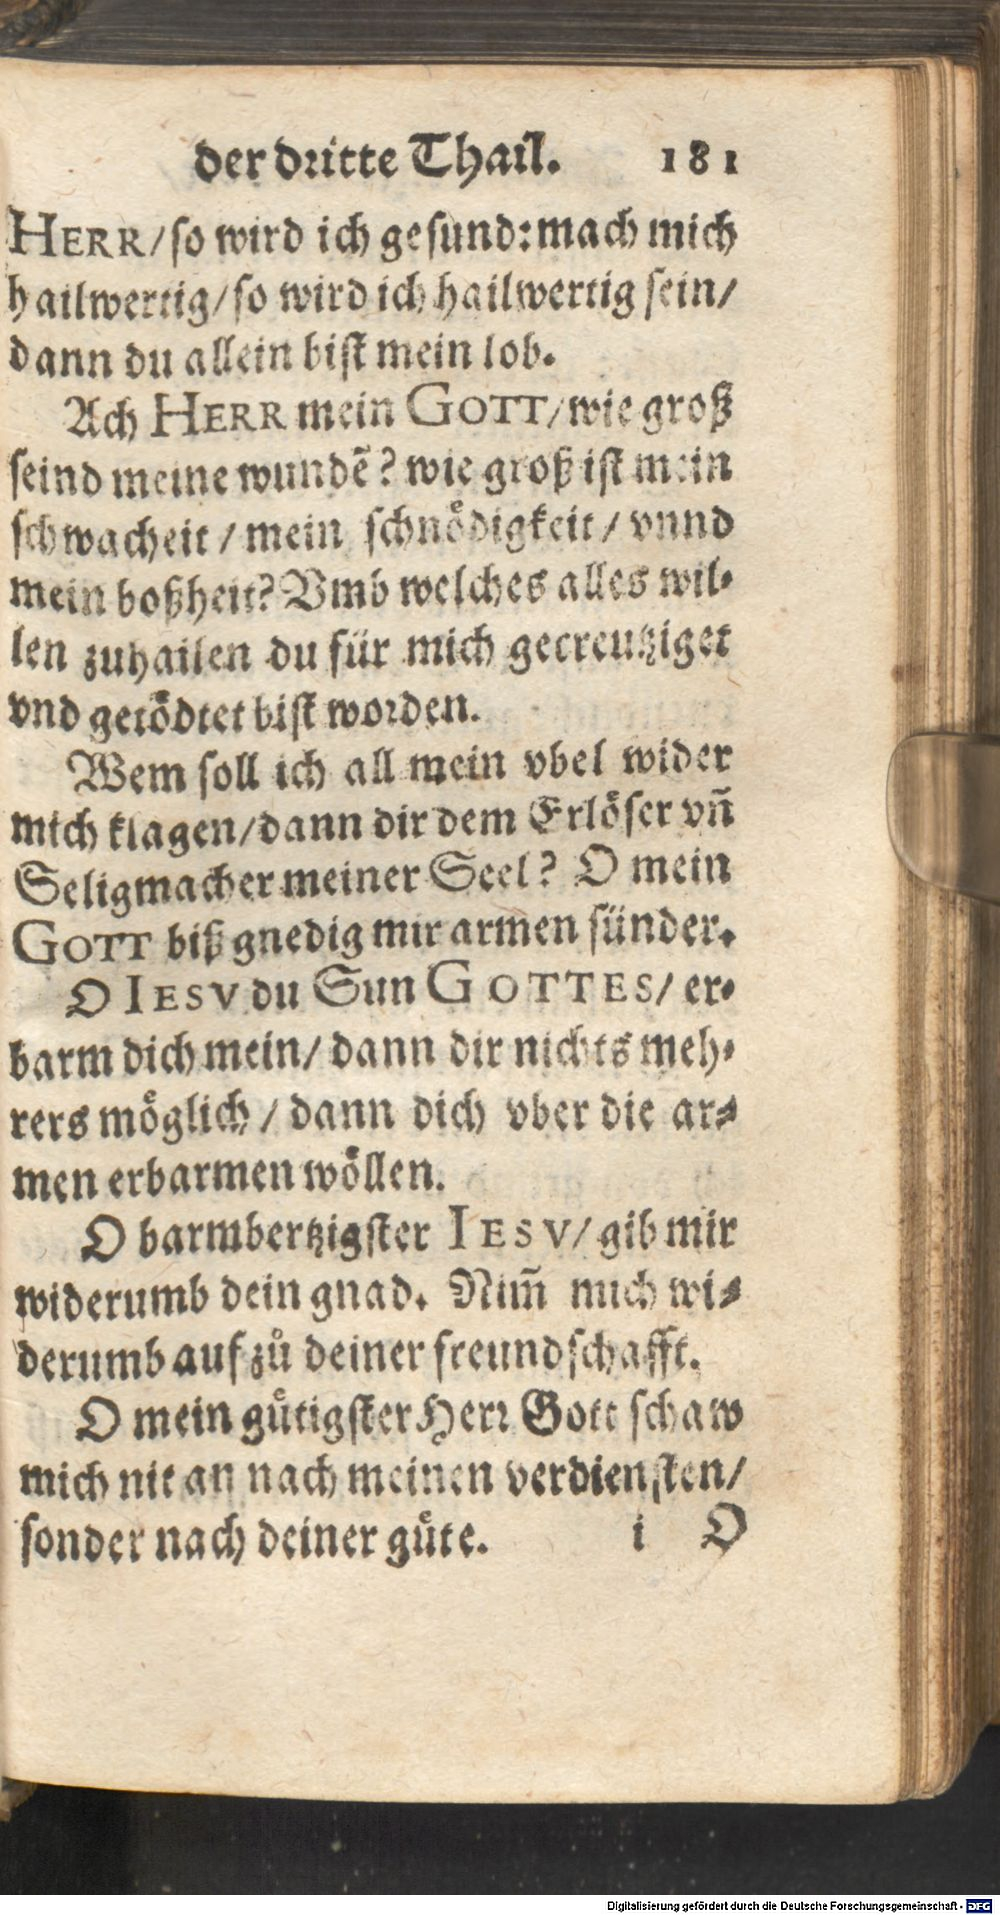 der dritte Thail. 181
HERR/so wird ich gesund: mach mich
hailwertig/so wird ich hailwertig sein/
dann du allein bist mein lob.
Ach HERR mein GOTT/wie groß
seind meine wundẽ? wie groß ist mein
schwacheit / mein schnoͤdigkeit / vnnd
mein boßheit? Vmb welches alles wil-
len zuhailen du für mich gecreutziget
vnd getoͤdtet bist worden.
Wem soll ich all mein vbel wider
mich klagen/dann dir dem Erloͤser vñ
Seligmacher meiner Seel? O mein
GOTT biß gnedig mir armen sünder.
O IESV du Sun GOTTES/ er-
barm dich mein/ dann dir nichts meh-
rers moͤglich / dann dich vber die ar-
men erbarmen woͤllen.
O barmhertzigster IESV/ gib mir
widerumb dein gnad. Nim̃ mich wi-
derumb auf zů deiner freundschafft.
O mein guͤtigster Herr Gott schaw
mich nit an nach meinen verdiensten/
sonder nach deiner guͤte. i O
Digitalisierung gefördert durch die Deutsche Forschungsgemeinschaft - DFG